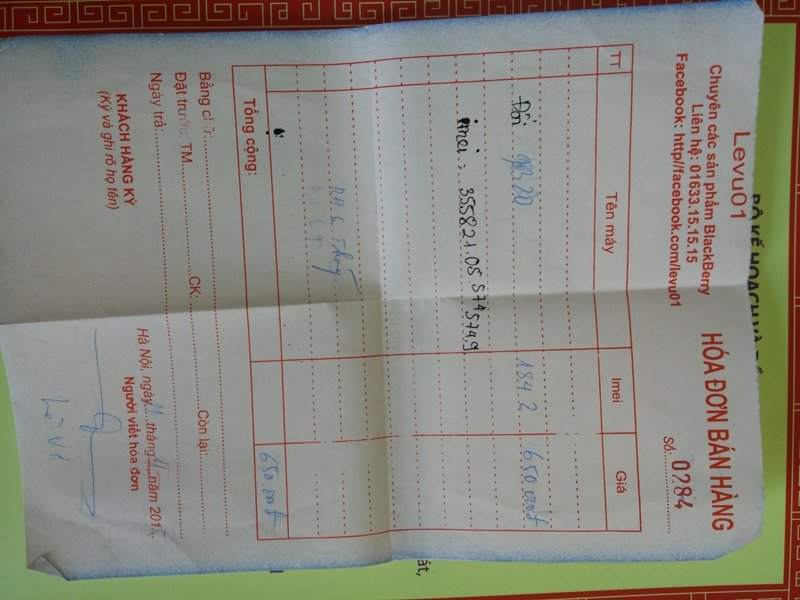 Levu01
Chuyên các sản phẩm BlackBerry
Liên hệ: 01633.15.15.15
Facebook: http//facebook.com/levu01
HÓA ĐƠN BÁN HÀNG
Số: 0284
TT Tên máy Imei Giá
Đổi 9320 1342 650
imei: 355821.05 574574.9
Tổng cộng: 650
Bằng chữ:
Đặt trước: TM CK: Còn lại:
Ngày trả:
Hà Nội, ngày 11 tháng 11 năm 201
KHÁCH HÀNG KÝ
(Ký và ghi rõ họ tên)
Người viết hóa đơn
Lê Vũ